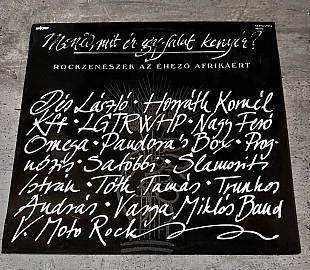 Mondd, mit ér egy falat kenyér?
ROCKZENÉSZEK AZ ÉHEZŐ AFRIKÁÉRT
Dés László · Horváth Kornél
Kft · LGT, RWHP · Nagy Feró
Omega · Pandora's Box · Prog-
nózis · Satöbbi · Slamovits
István · Tóth Tamás · Trunkos
András · Varga Miklós Band
V. Moto Rock